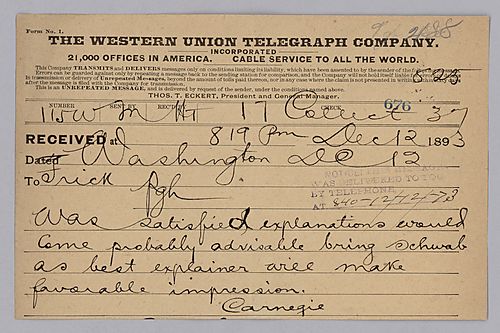 Form No. 1.
THE WESTERN UNION TELEGRAPH COMPANY.
INCORPORATED
21,000 OFFICES IN AMERICA. CABLE SERVICE TO ALL THE WORLD.
This Company TRANSMITS and DELIVERS messages only on conditions limiting its liability, which have been assented to by the sender of the
Errors can be guarded against only by repeating a message back to the sending station for comparison, and the Company will not hold itself liable
in transmission or delivery of Unrepeated Messages, beyond the amount of tolls paid thereon, nor in any case where the claim is not presented in writing
after the message
This is an UNREPEATED MESSAGE, and is delivered by request of the sender, under the conditions named above.
THOS. T. ECKERT, President and General Manager.
NUMBER SENT BY REC'D BY CHECK
676
17 Collect
RECEIVED at 819 Pm Dec 12 1893
Dated Washington DC 12
To Frick
Pgh
WAS DELIVERED TO YOU
BY TELEPHONE
AT
Was satisfied explanations would
Come probably advisable bring Schwab
as best explainer will make
favorable impression.
Carnegie